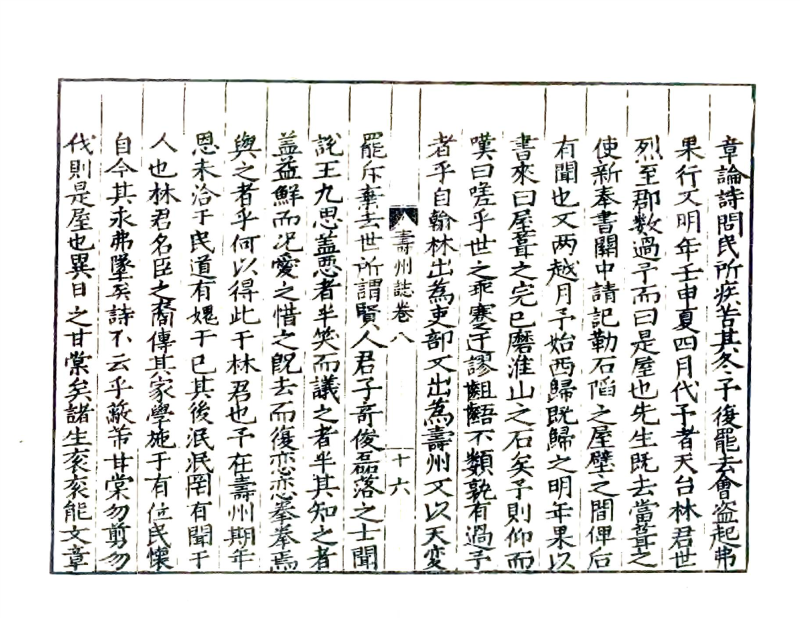 章論詩問民所疾苦其冬予復罷去會盗起弗
果行又明年壬申夏四月代予者天台林君世
烈至郡數過予而曰是屋也先生既去當葺之
使新奉書關中請記勒石䧟之屋壁之間俾后
有聞也又两越月予始西歸既歸之明年果以
書來曰屋葺之完已磨淮山之石矣予則仰而
嘆曰嗟乎世之乖蹇迂謬齟齬不類孰有過予
者乎自翰林出為吏部又出為壽州又以天变
壽州誌卷八
十六
罷斥棄去世所謂賢人君子奇俊磊落之士聞
説王九思盖悪者半笑而議之者半其知之者
盖益鮮而况愛之惜之既去而復恋恋拳拳焉
與之者乎何以得此于林君也予在壽州期年
恩未洽于民道有媿于已其後泯泯罔有聞于
人也林君名臣之裔傳其家學施于有位民懷
自今其永弗墜矣詩不云乎蔽芾甘棠勿剪勿
伐則是屋也異日之甘棠矣諸生衮衮能文章